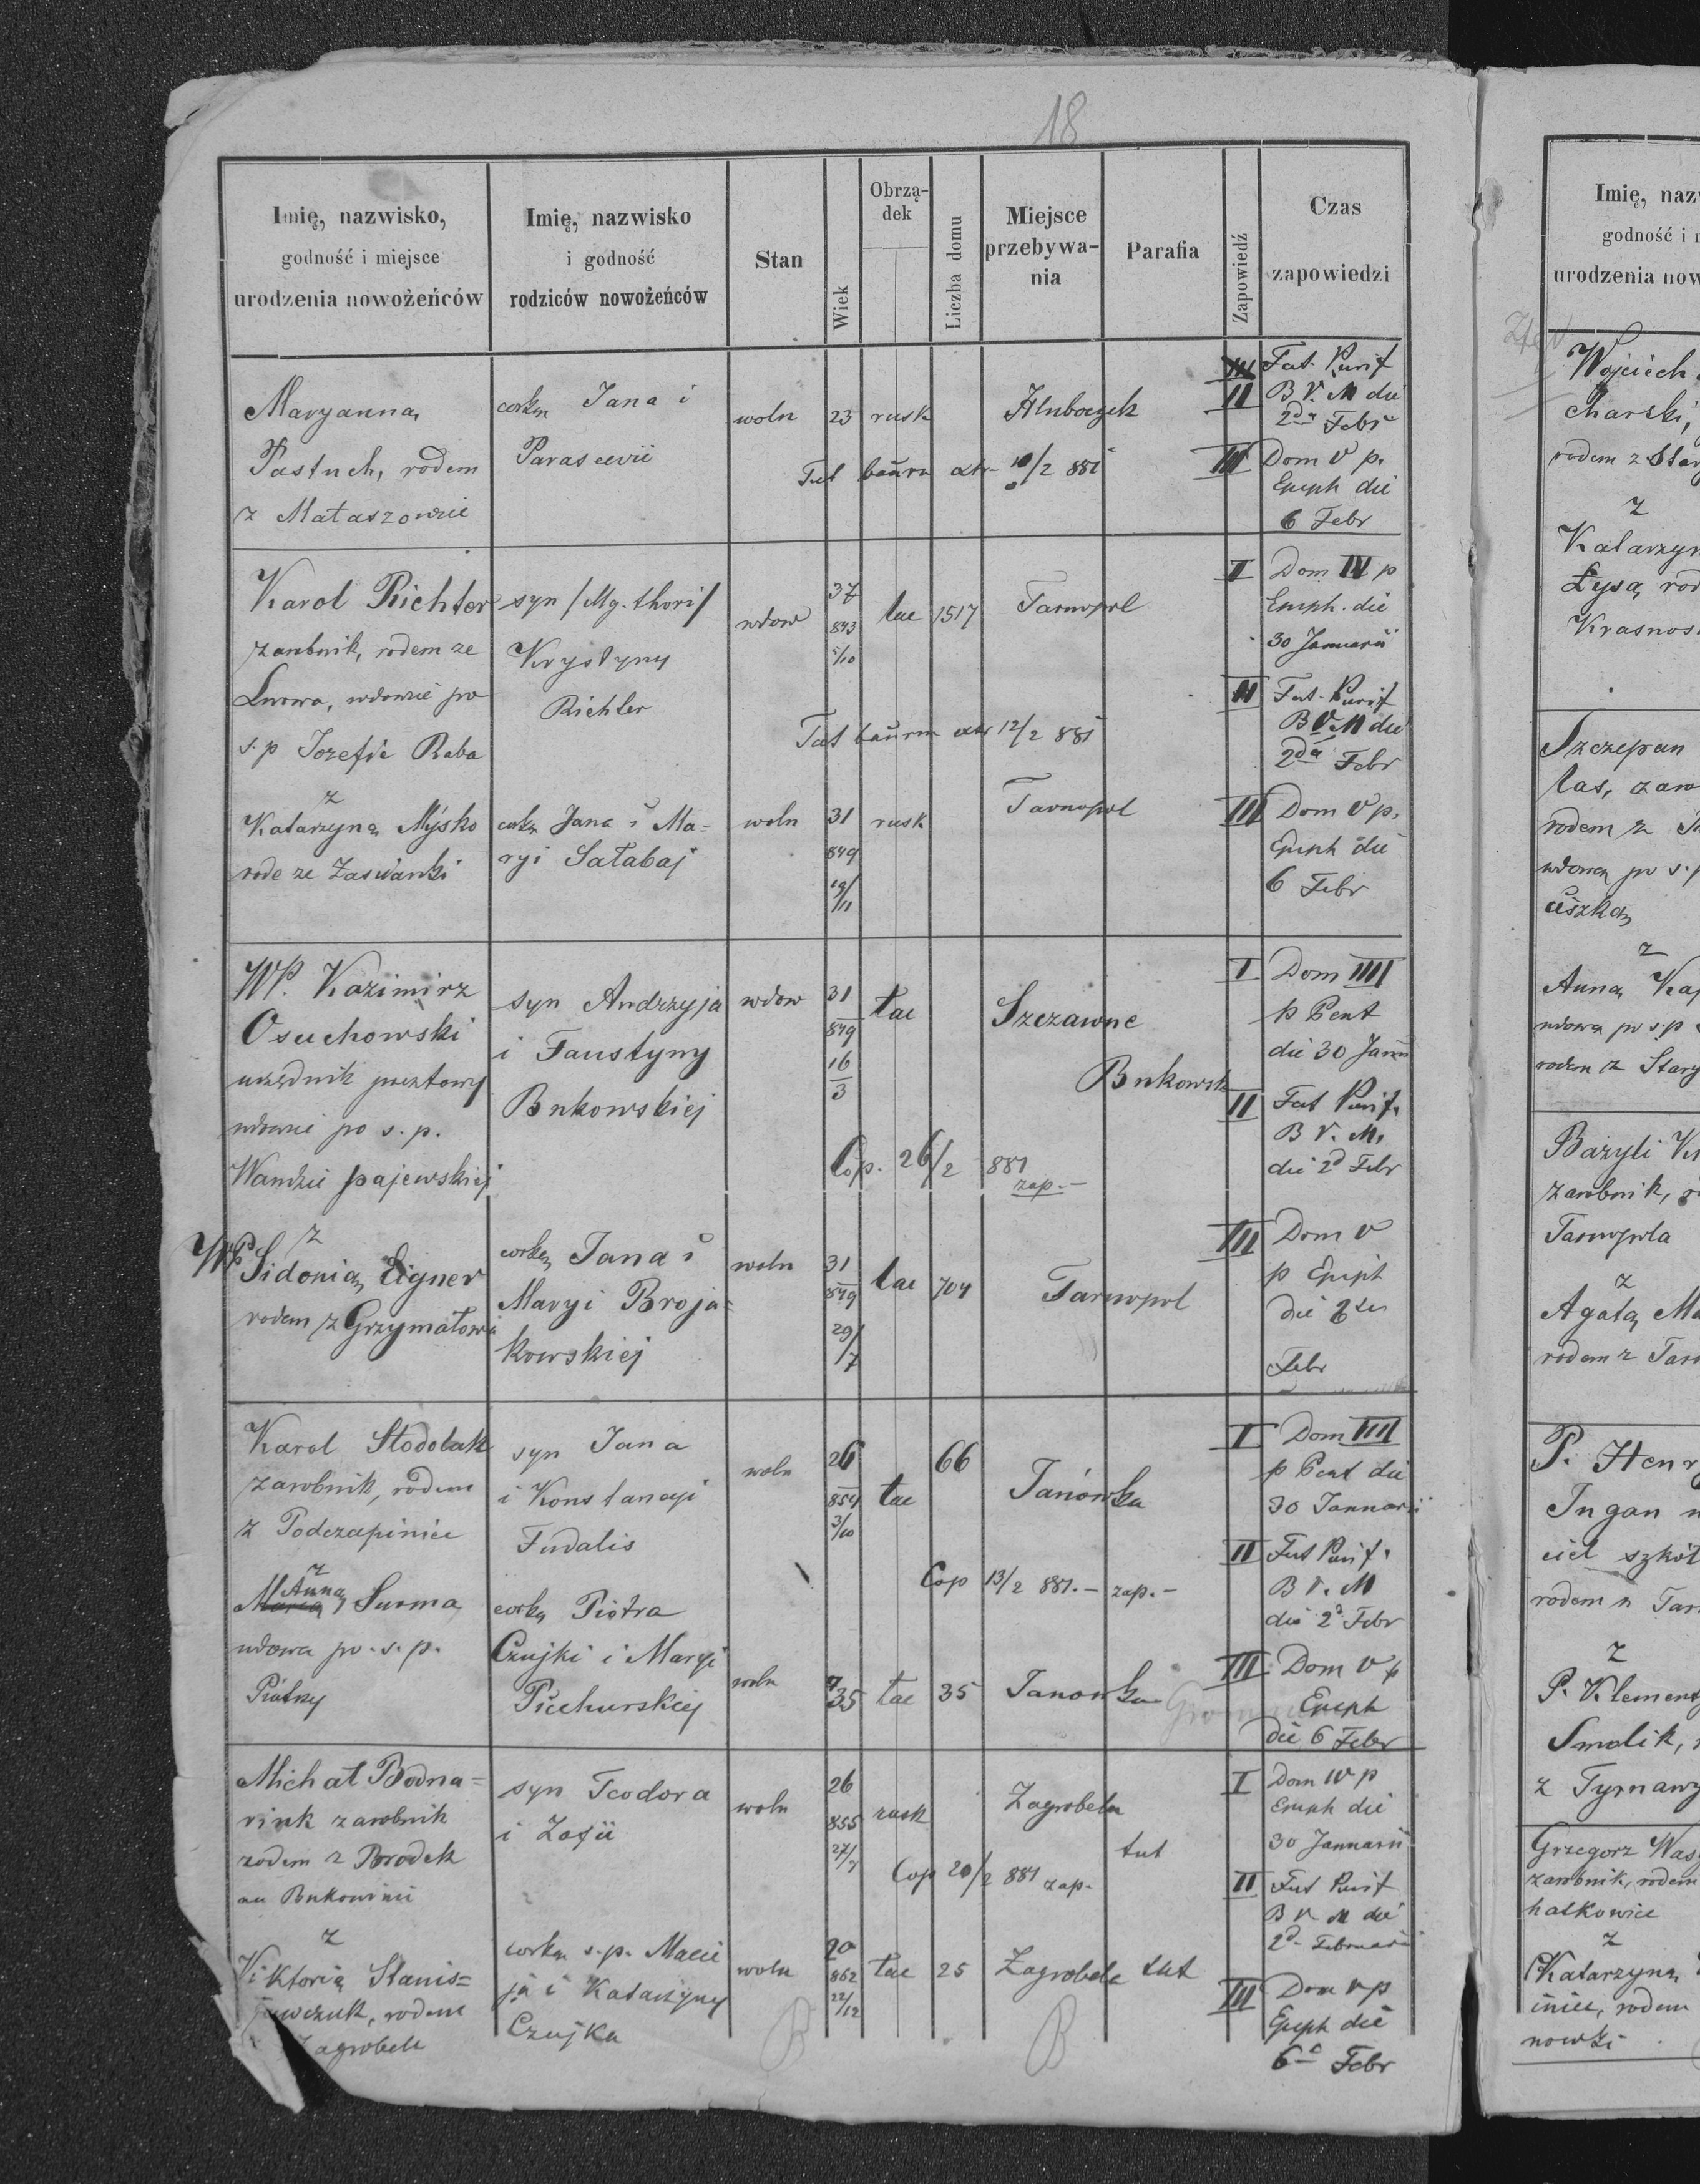 18
Imię, nazwisko,
godność i miejsce
urodzenia nowożeńców
Imię, nazwisko
i godność
rodziców nowożeńców
Stan
Wiek
Obrzą-
dek
Liczba domu
Miejsce
przebywa-
nia
Parafia
Zapowiedź
Czas
zapowiedzi
Maryanną
Pastuch, rodem
z Mataszowzie
corką Jana i
Parascevii
woln
23
rusk
Hluboczek
10/2 881
II
Fat. Purif
B V. M die
2da Febr
III
Dom V p.
Epiph die
6 Febr
Karol Richter
zarobnik, rodem ze
Lwowa, wdowiec po
s. p Jozefie Baba
syn /Mg. thori/
Krystyny
Richter
wdow
37
843
1/10
lac
1517
Tarnopol
12/2 881
I
Dom IV p
Epiph. die
30 Januarii
II
Fat. Purif
B V M die
2da Febr
z
Katarzyną Mysko
rode ze
corką Jana i Ma=
ryi Sałabaj
woln
31
849
19/11
rusk
Tarnopol
III
Dom V p.
Epiph die
6 Febr
WP. Kazimirz
Osuchowski
urzędnik pocztowy
wdowiec po s. p.
Wandzie pajewskiej
syn Andrzyja
i Faustyny
Bukowskiej
wdow
31
849
16
3
lac
Szczawne
Bukowsk
Cop. 26/2 881
zap. –
I
Dom IIII
p Pent
die 30 Janu
II
Fat Purif.
B V. M.
die 2d Febr
z
WP Sidonią Eigner
rodem z Grzymałowa
corką Jana i
Maryi Broja=
kowskiej
woln
31
849
29/7
lac
704
Tarnopol
III
Dom V
p Epiph
die
Febr
Karol Stodolak
zarobnik, rodem
z Podczapiniec
syn Jana
i Konstancyi
Fudalis
woln
26
854
3/10
lac
66
Janówka
Cop 13/2 881. – zap. –
I
Dom IIII
p Pent die
30 Januarii
II
Fat Purif.
B V. M
die 2d Febr
z
Anną
Surma
wdowa po. s. p.
corką Piotra
Czujki i Maryi
Piechurskiej
woln
35
lac
35
Janowka
III
Dom V p
Epiph
die 6 Febr
Michał Bodna=
riuk zarobnik
rodem z Brodek
na Bukowinie
syn Teodora
i Zofii
woln
26
855
rusk
Zagrobela
tut
Cop 20/2 881 zap.
I
Dom IV p
Epiph die
30 Januarii
II
Fat Purif
B V M die
2d. Februarii
z
Wiktorią Stanis=
rodem
Zagrobeli
corką s. p. Macie
ja i Katarzyny
Czujka
woln
20
862
22/12
lac
25
Zagrobela
tut
III
Dom V p
Epiph die
6a Febr
B
B
Imię, naz
godność i
urodzenia now
Wojciech
charski,
rodem z Star
z
Katarzyn
Łysą, rod
Krasnos
Szczepan
las, zaro
rodem z
wdową po s. p
z
Anną Ka
wdowa po s. p
rodem z Stary
Bazyli K
zarobnik, r
Tarnopola
z
Agatą Ma
rodem z Tarn
P. Henry
ciel szkół
rodem z Tar
z
P. Klement
Smolik,
z Tyrnawy
Grzegorz Was
zarobnik, rodem
halkowice
z
Katarzyną
rodem
nowki